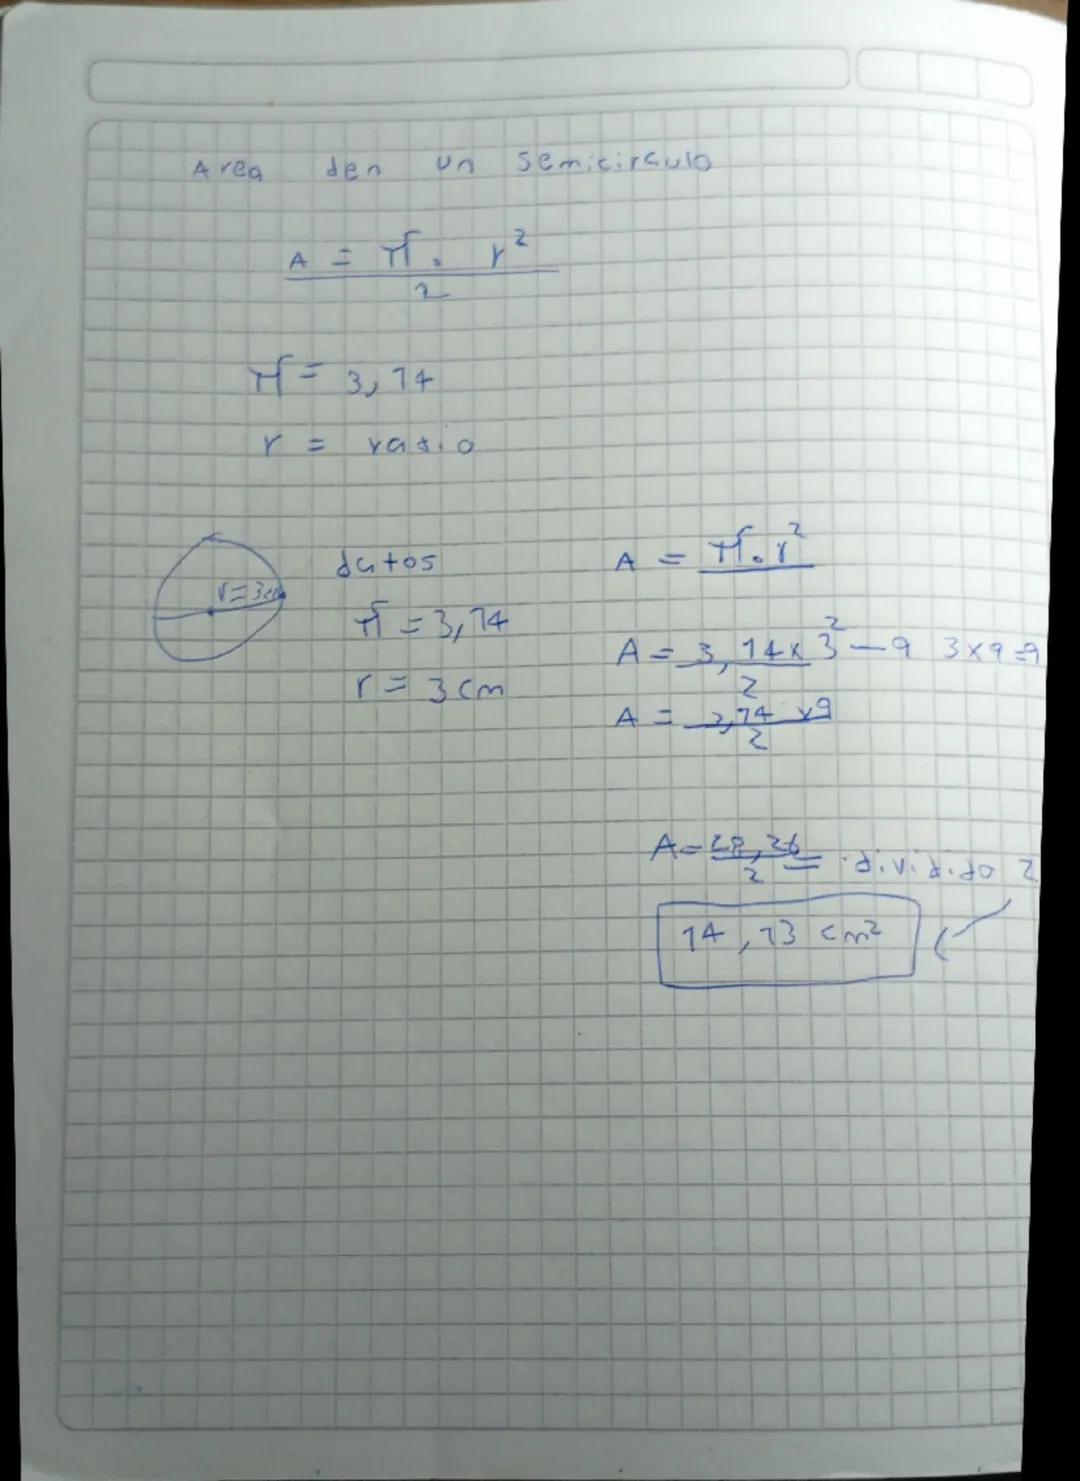 Area den un semicirculo
A = π . r²
2
π = 3,14
r = radio
r=3cm
datos
π = 3,14
r = 3 cm
A = π . r²
A = 3,14 x 3² — 9 3x9=9
2
A = 3,14 x9
2
A = 28,26 = dividido 2
2
14,13 cm²